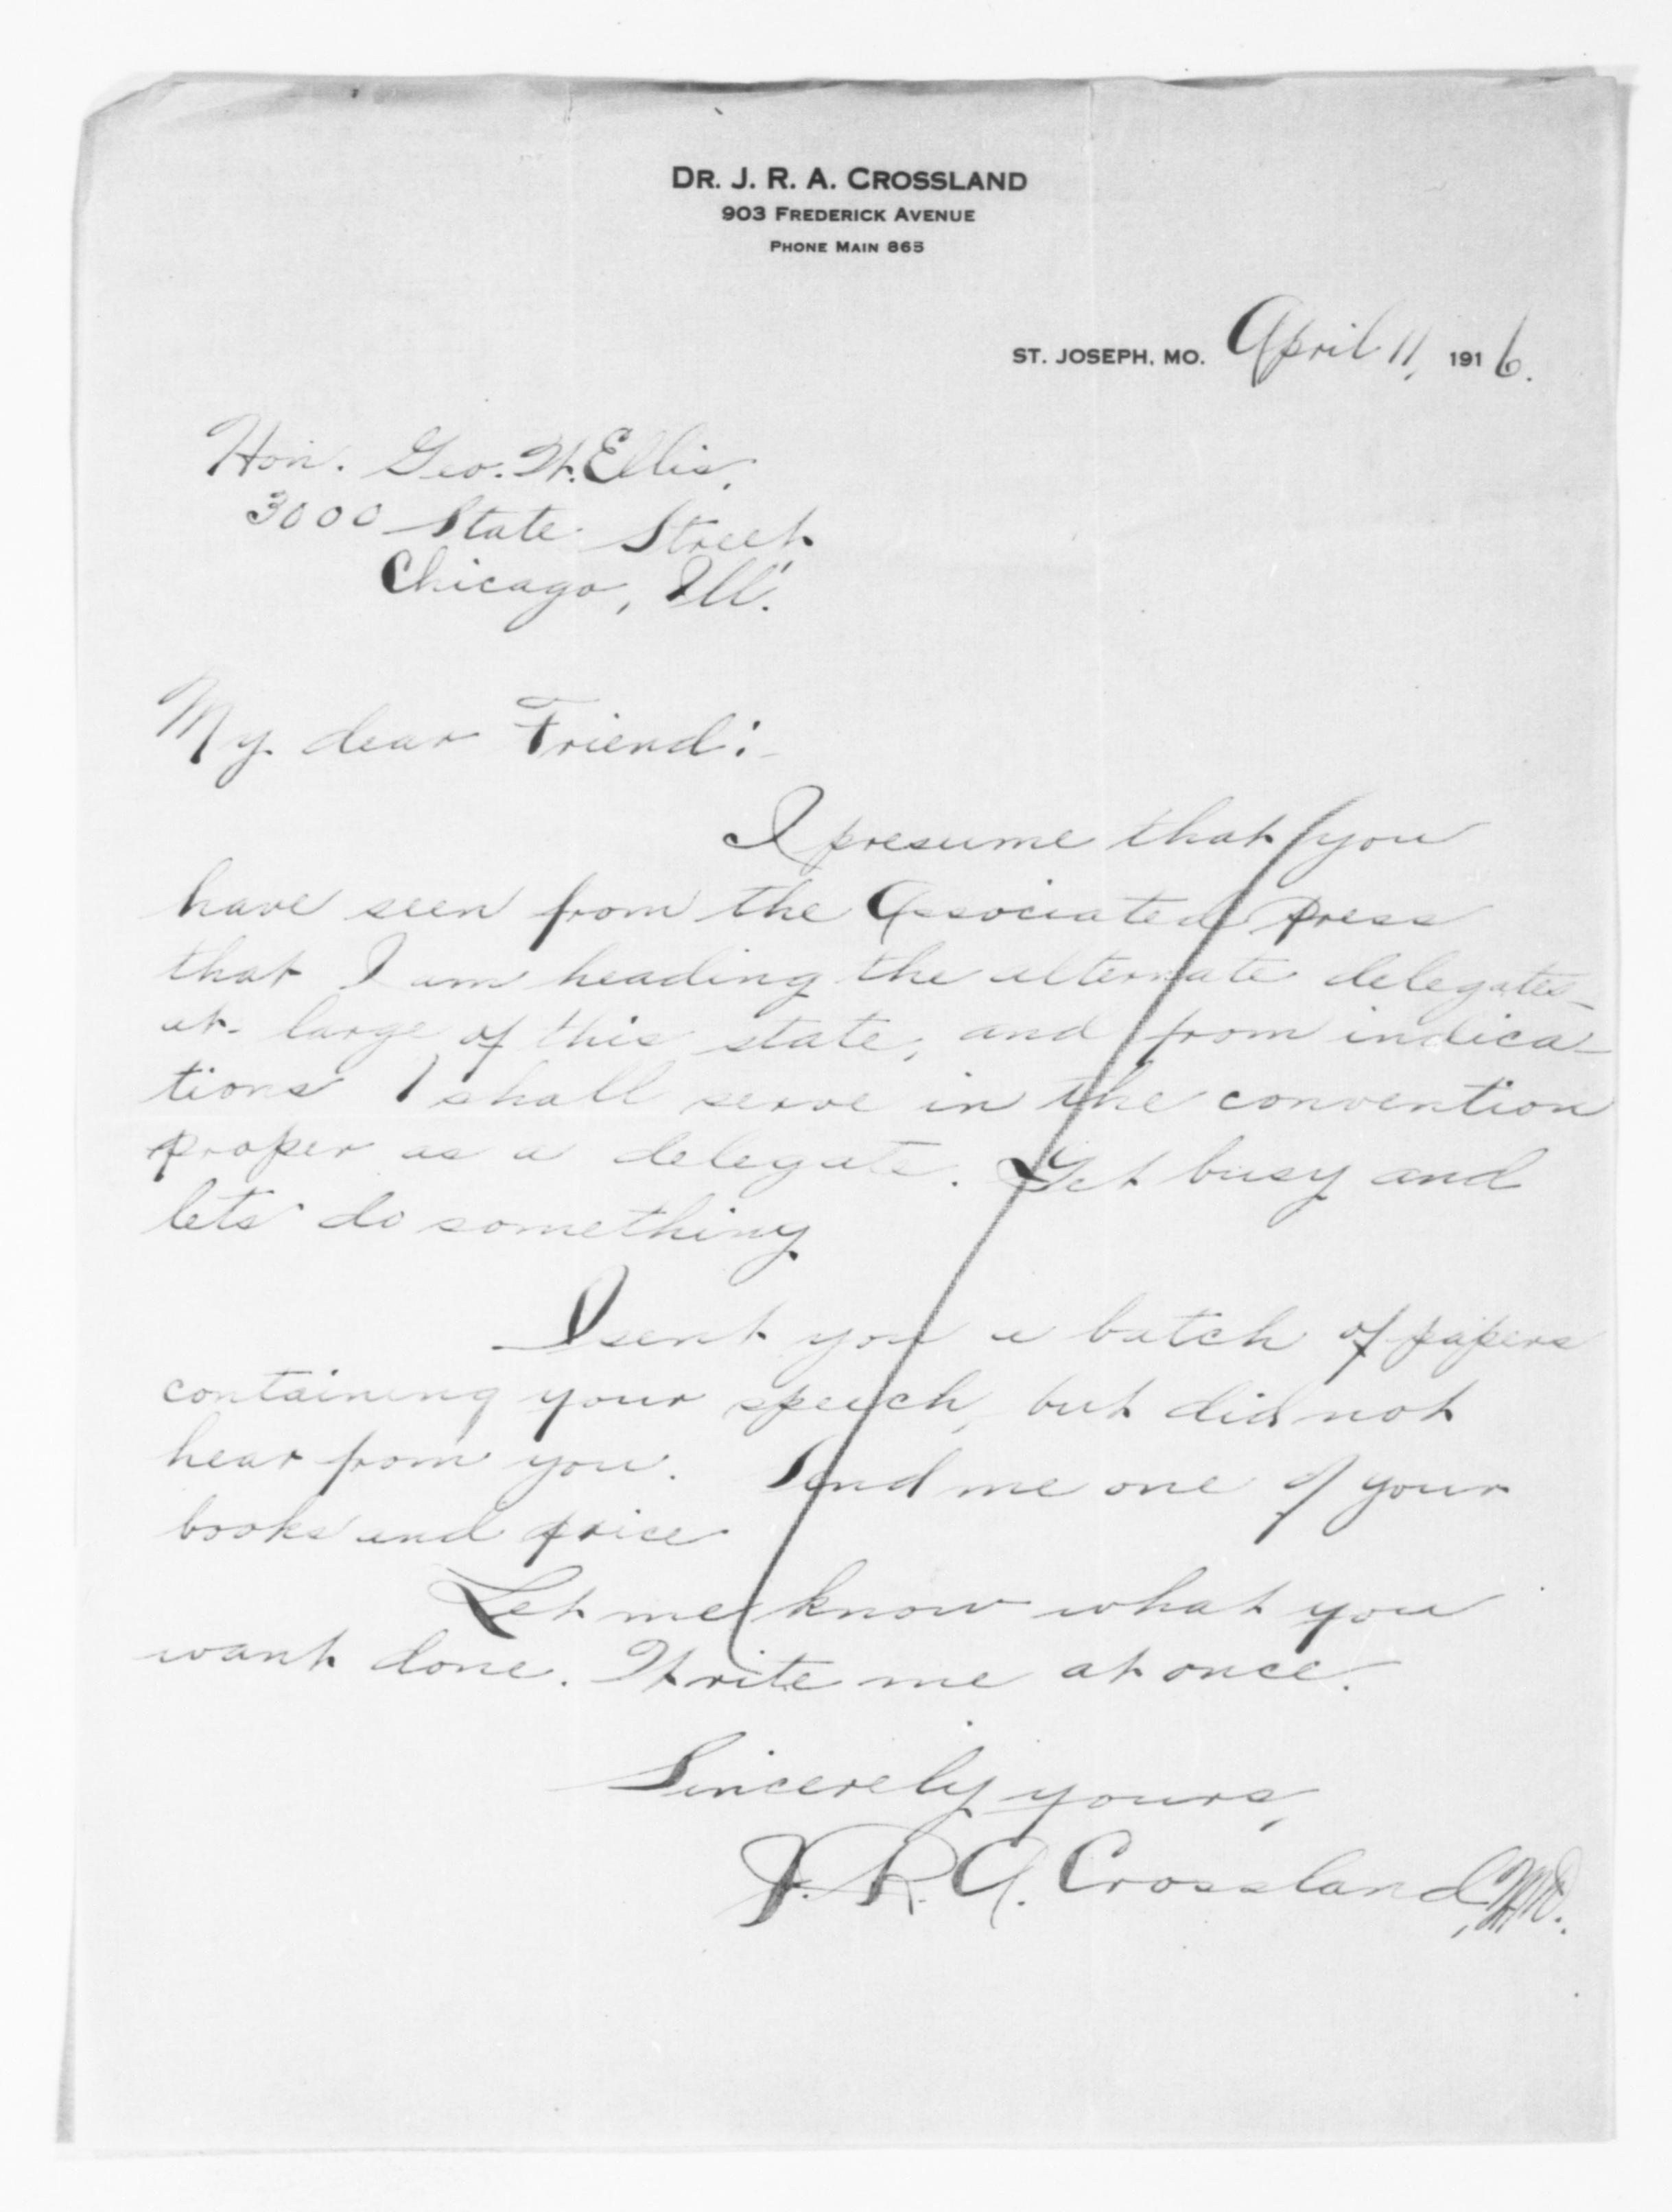 DR. J. R. A. CROSSLAND
903 FREDERICK AVENUE
PHONE MAIN 865
ST. JOSEPH, MO. April 11, 1916.
Hon. Geo. W. Ellis,
3000 State Street
Chicago, Ill.
My dear Friend:-
I presume that you
have seen from the Associated Press
that I am heading the alternate delegates-
at-large of this state, and from indica-
tions I shall serve in the convention
proper as a delegate. Get busy and
lets do something
I sent you a batch of papers
containing your speech, but did not
hear from you. Send me one of your
books and price
Let me know what you
want done. Write me at once.
Sincerely yours,
J. R. A. Crossland, M.D.